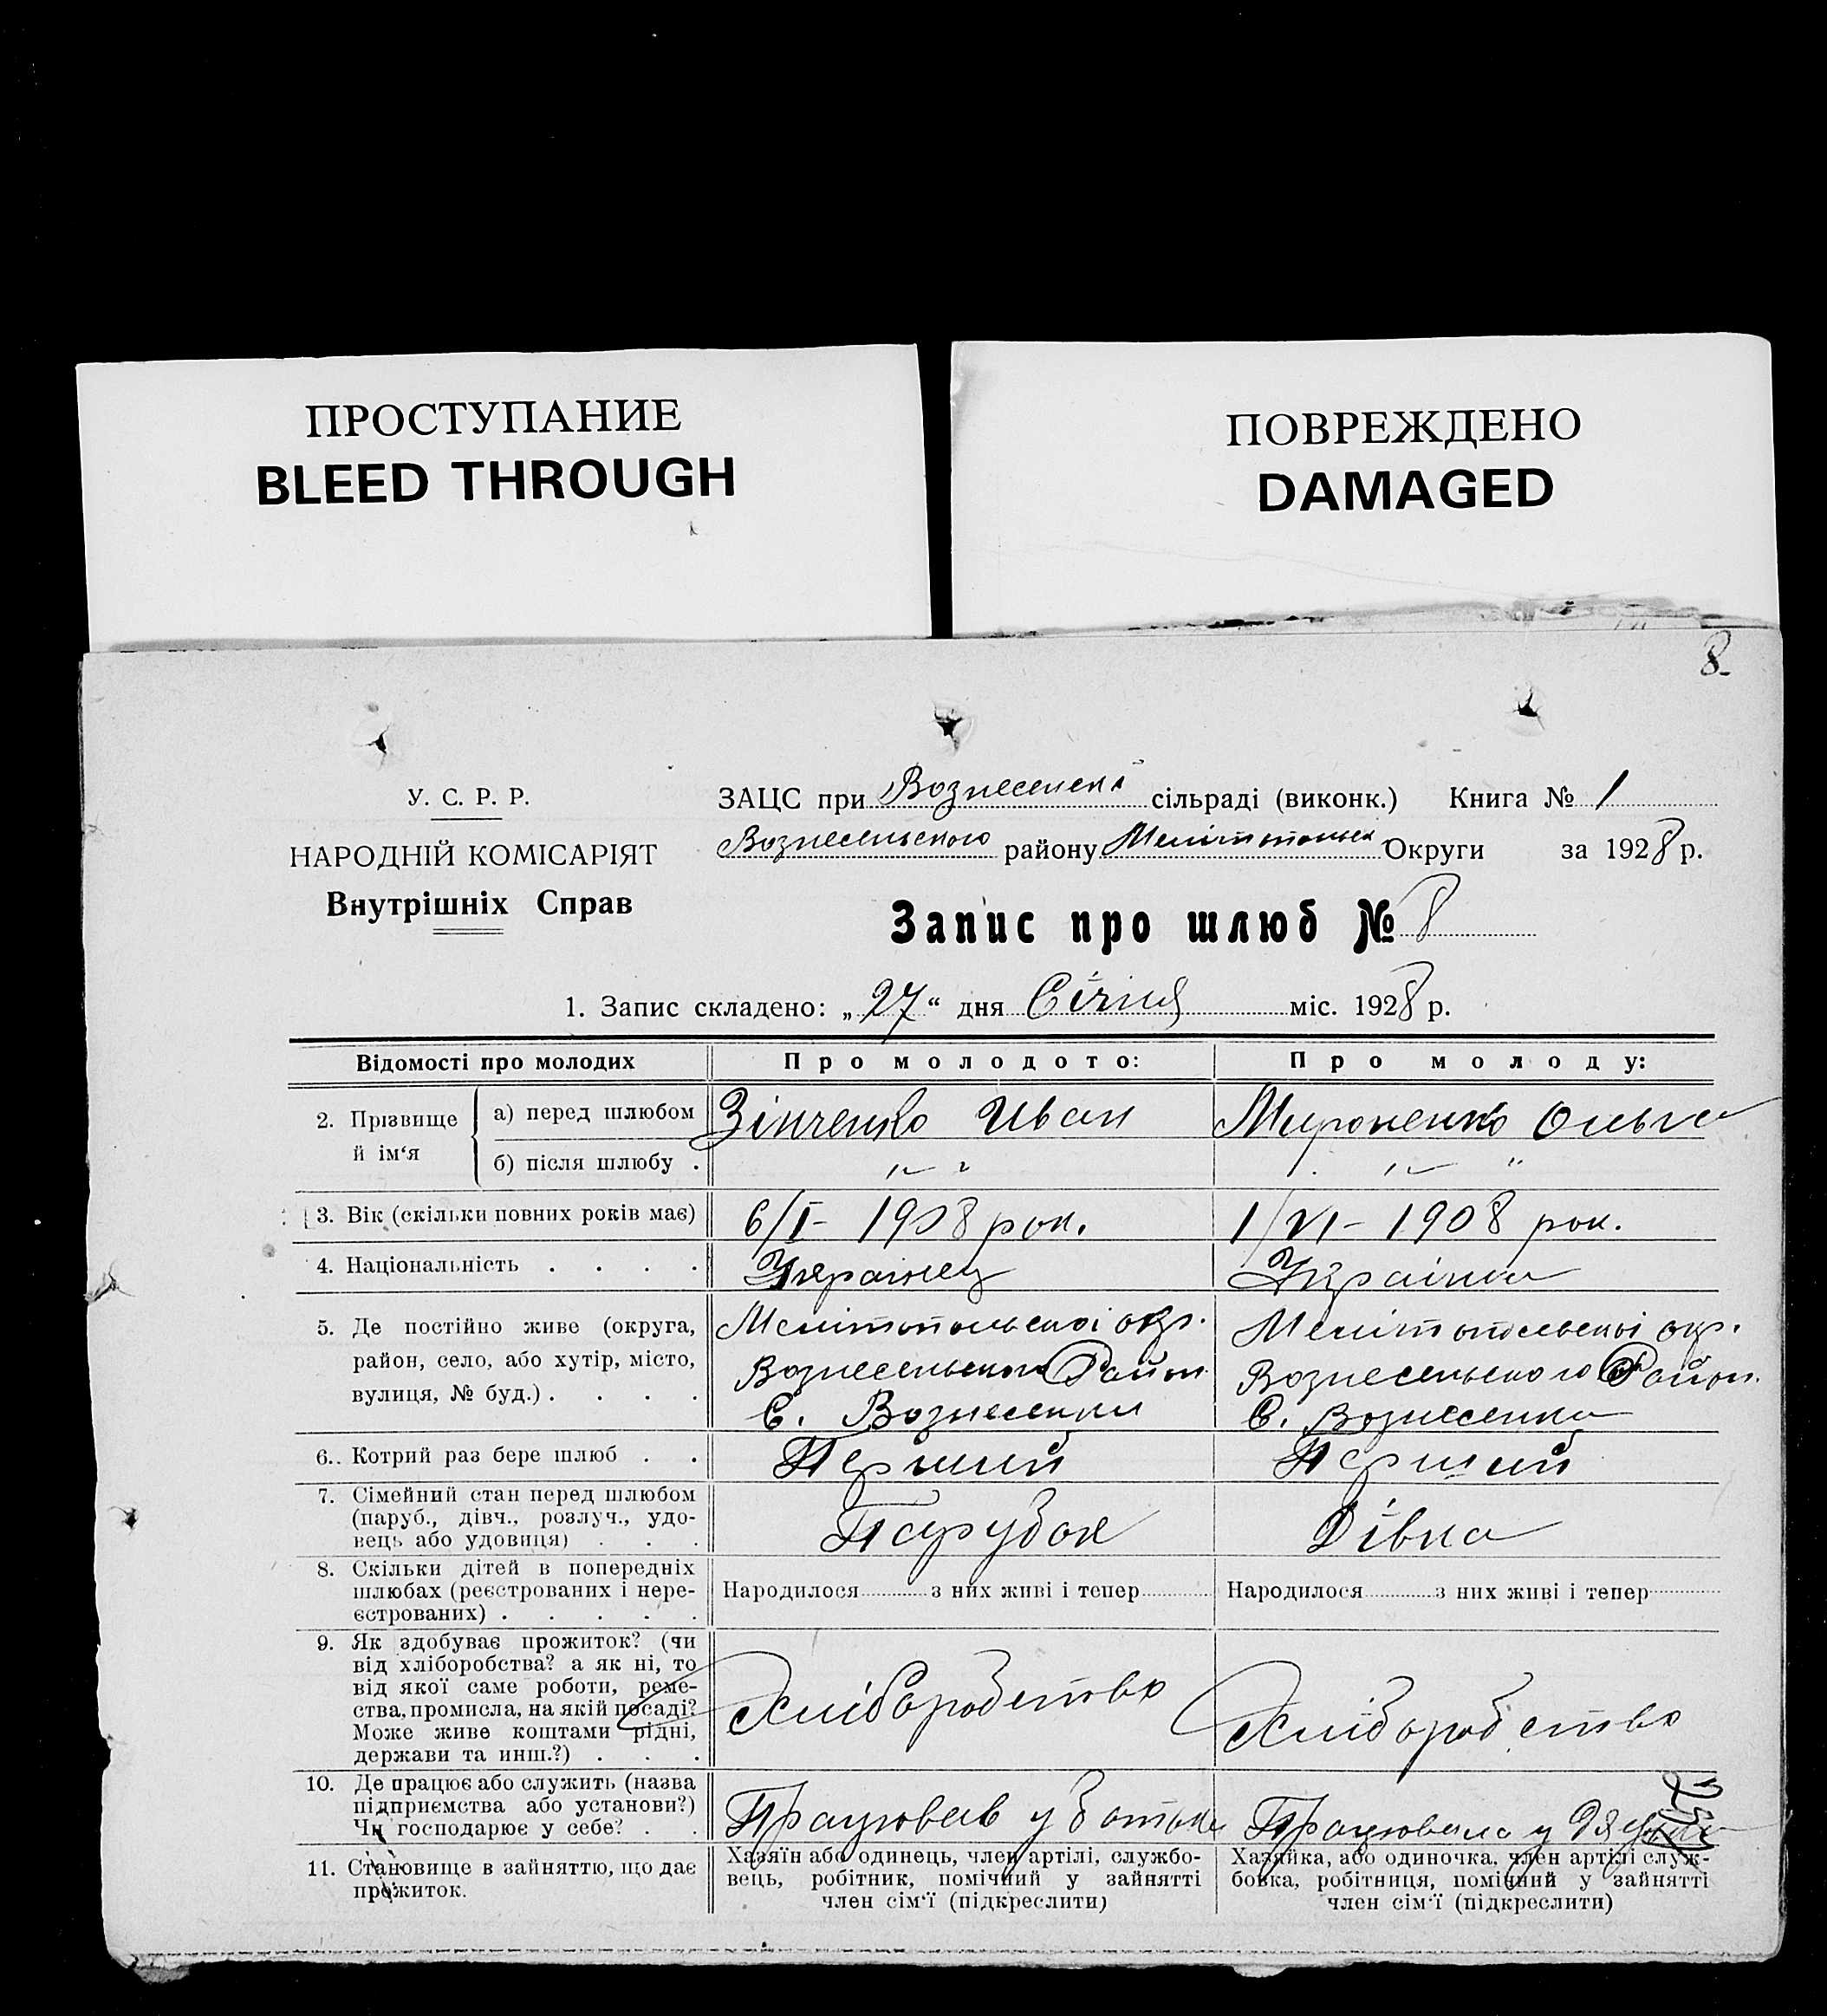 ПРОСТУПАНИЕ
BLEED THROUGH
ПОВРЕЖДЕНО
DAMAGED
8.
У. С. Р. Р.
НАРОДНІЙ КОМІСАРІЯТ
Внутрішніх Справ
ЗАЦС при Вознесенські сільраді (виконк.) Книга № 1
Вознесенського району Мелітопольск Округи за 1928 р.
Запис про шлюб № 8
1. Запис складено: „27“ дня Січня міс. 1928 р.
Відомості про молодих
Про молодого:
Про молоду:
2. Прізвище й ім‘я
а) перед шлюбом
Зінченко Иван
Мироненко Ольга
б) після шлюбу .
3. Вік (скільки повних років має)
6/I - 1908 рок.
1/VI - 1908 рок.
4. Національність . . . .
Украінец
Украінка
5. Де постійно живе (округа,
район, село, або хутір, місто,
вулиця, № буд.) . . . .
Мелітопольскоі окр.
Вознесенського Район.
С. Вознесенки
Мелітопольскоі окр.
Вознесенського Район.
С. Вознесенка
6. Котрий раз бере шлюб . .
Перший
Перший
7. Сімейний стан перед шлюбом
(паруб., дівч., розлуч., удо-
вець або удовиця) . . .
Парубок
Дівка
8. Скільки дітей в попередніх
шлюбах (реєстрованих і нере-
єстрованих) . . . . .
Народилося з них живі і тепер
Народилося з них живі і тепер
9. Як здобуває прожиток? (чи
від хліборобства? а як ні, то
від якої саме роботи, реме-
ства, промисла, на якій посаді?
Може живе коштами рідні,
держави та инш.?) . . .
Хліборобство
Хліборобство
10. Де працює або служить (назва
підприємства або установи?)
Чи господарює у себе? . .
Працював у батька
Працювала у
11. Становище в зайняттю, що дає
прожиток.
Хазяїн або одинець, член артілі, службо-
вець, робітник, помічний у зайнятті
член сім‘ї (підкреслити)
Хазяйка, або одиночка, член артілі служ-
бовка, робітниця, помічний у зайнятті
член сім‘ї (підкреслити)